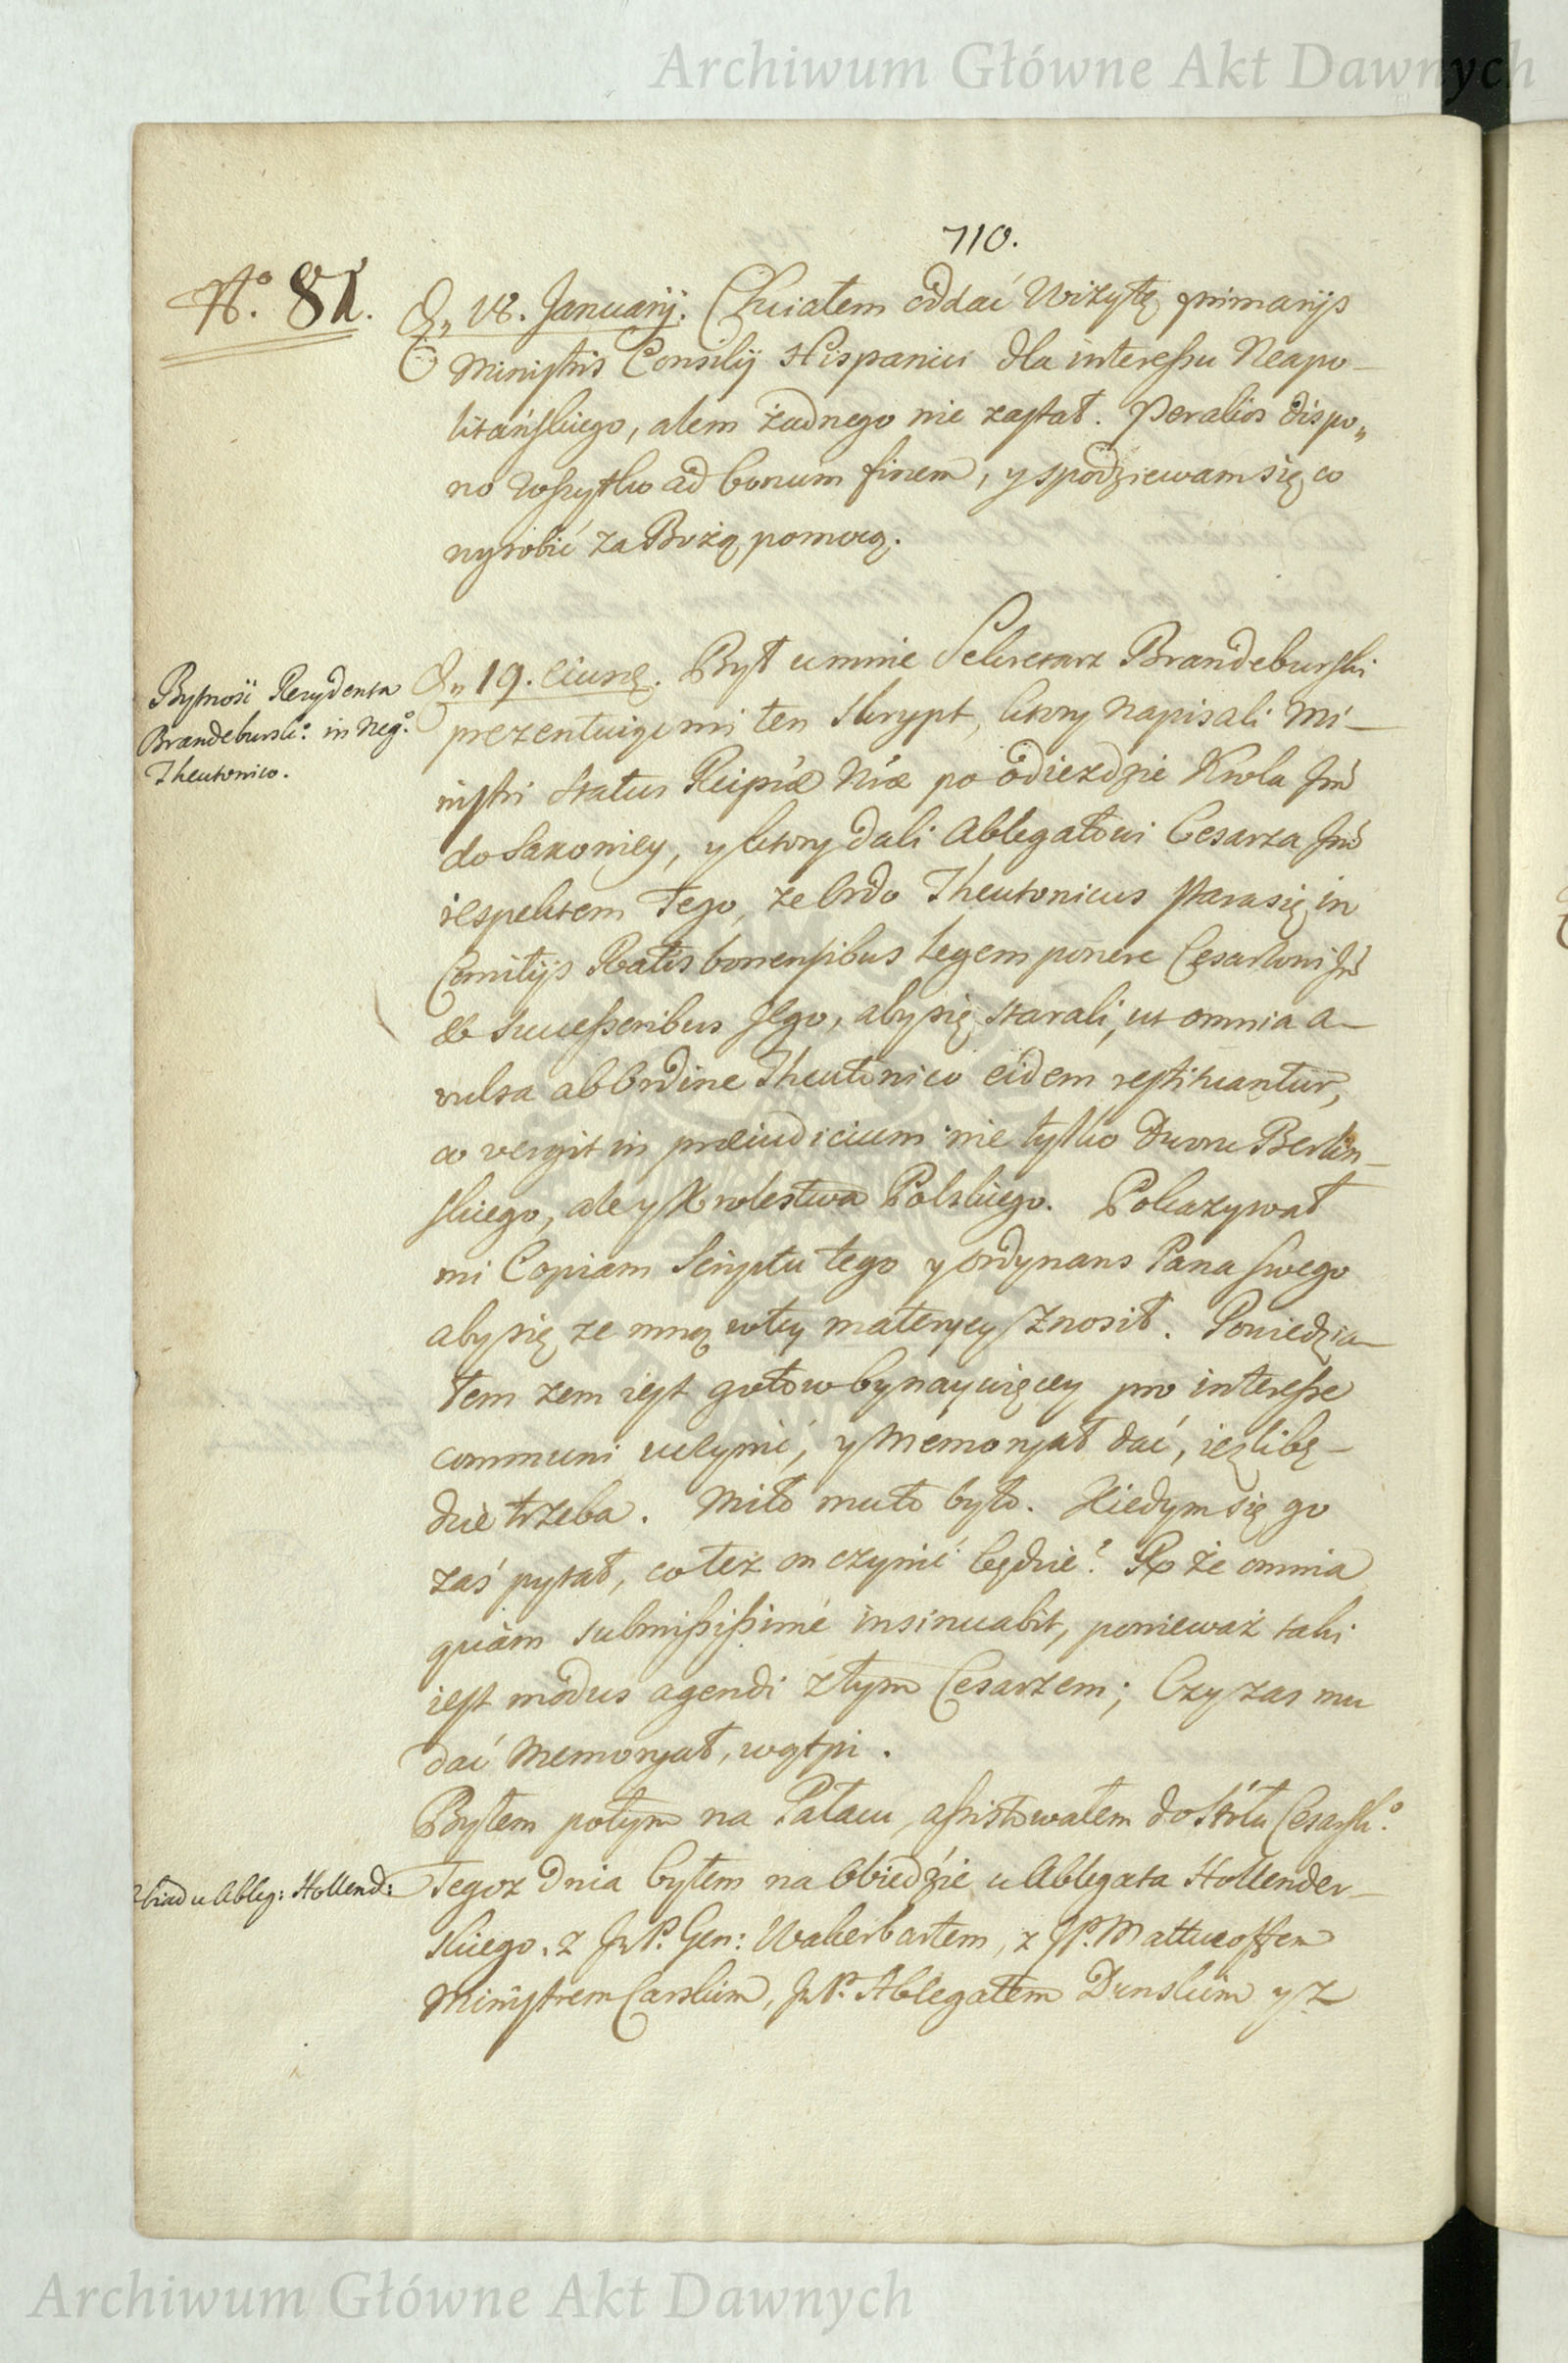 Archiwum Główne Akt Dawnych
710.
No. 81.
D„ 18. Januarij. Chciałem oddać Wizytę primarijs
Ministris Consilij Hispanici dla interessu Neapo-
litańskiego, alem żadnego nie zastał. Per alios dispo„
no wszytko ad bonum finem, y spodziewam się co
wyrobić za Bożą pomocą.
Bytność Rezydenta
Brandeburski: in Nego
Theutonico.
D„ 19. eiusd. Był u mnie Sekretarz Brandeburski
prezentuiąc mi ten skrypt, ktory napisali Mi-
nistri Status Reipcæ Nræ po odiezdzie Krola Jmć
do Saxoniey, y ktory dali Ablegatowi Cesarza Jmć
respektem tego, ze Ordo Theutonicus stara się in
Comitijs Ratisbonensibus legem ponere Cesarzowi Jmć
& Successoribus Jego, aby się starali, ut omnia a-
vulsa ab Ordine Theutonico eidem restituantur,
co vergit in præiudicium nie tylko Dworu Berlin-
skiego, ale y Krolestwa Polskiego. Pokazywał
mi Copiam Scriptu tego y ordynans Pana swego
aby się ze mną w tey materyey znosił. Powiedzia-
łem zem iest gotow by naywięcey pro interesse
communi uczynić, y Memoryał dać, iezli bę-
dzie trzeba. Miło mu to było. Kiedym się go
zaś pytał, co też on czynić będzie? Rx że omnia
quàm submississimé insinuabit, ponieważ taki
iest modus agendi z tym Cesarzem; Czy zas mu
dać Memoryał, wątpi.
Byłem potym na Pałacu, assistowałem do Stołu Cesarsko
Obiad u Ableg: Hollend:
Tegoz Dnia byłem na Obiedzie u Ablegata Hollender-
skiego, z JmP. Gen: Wakerbartem, z JP. Mattueoffem
Ministrem Carskim, JmP. Ablegatem Dunskim y z
Archiwum Główne Akt Dawnych